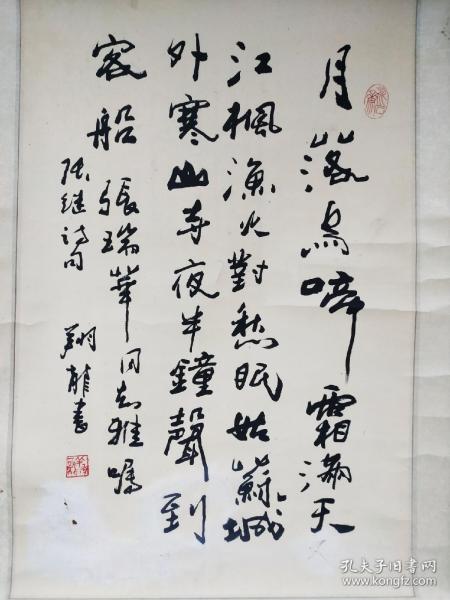 月落乌啼霜满天
江枫渔火對愁眠姑蘇城
外寒山寺夜半鐘聲到
客船 張瑞華同志雅嘱
张继诗句 翔龍書
孔夫子旧书网
www.kongfz.com